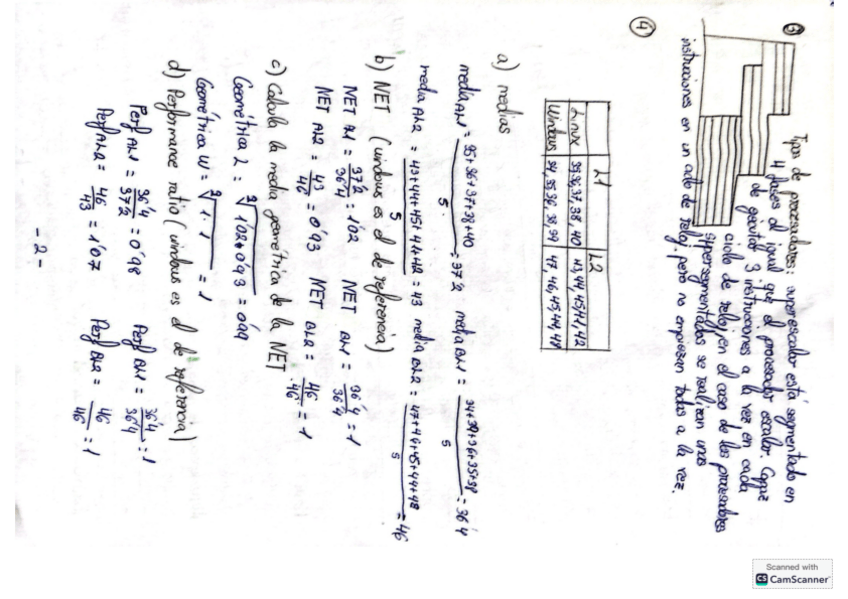 ③ Tipos de procesadores: superescalar está segmentado en
4 fases al igual que el procesador escalar. Capaz
de ejecutar 3 instrucciones a la vez en cada
ciclo de reloj, en el caso de los procesadores
supersegmentados se realizan unas
instrucciones en un ciclo de reloj, pero no empiezan todas a la vez.
④
L1 L2
Linux 35,36,37,38,40 43,44,45,41,42
Windows 34, 39 36 38, 47, 46, 45, 44, 48
a) medias
media AL1 = 35+36+37+38+40 / 5 = 37'2 media BL1 = 34+39+36+35+38 / 5 = 36'4
media AL2 = 43+44+45+41+42 / 5 = 43 media BL2 = 47+46+45+44+48 / 5 = 46
b) NET (windows es el de referencia)
NET AL1 = 37'2 / 36'4 = 1'02 NET BL1 = 36'4 / 36'4 = 1
NET AL2 = 43 / 46 = 0'93 NET BL2 = 46 / 46 = 1
c) Calcula la media geométrica de la NET
Geométrica L = ²√1'02+0'93 = 0'99
Geométrica W = ²√1·1 = 1
d) Performance ratio (windows es el de referencia)
Perf AL1 = 36'4 / 37'2 = 0'98 Perf BL1 = 36'4 / 36'4 = 1
Perf AL2 = 46 / 43 = 1'07 Perf BL2 = 46 / 46 = 1
- 2 -
Scanned with
CS CamScanner